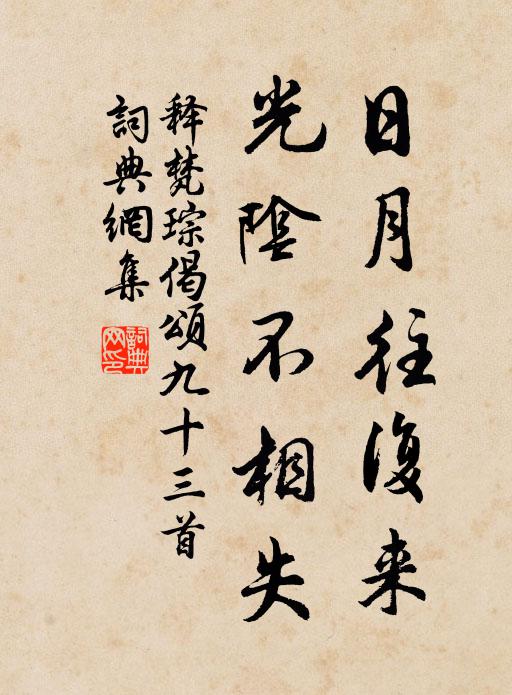 日月往復来
光陰不相失
釋梵琮偈頌九十三首
詞典網集
詞典網印